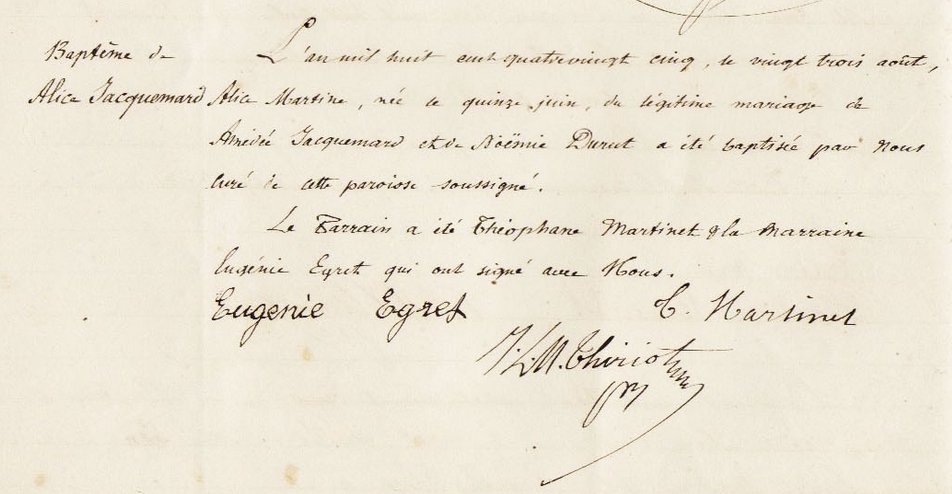 Baptême de
Alice Jacquemard
L'an mil huit cent quatrevingt cinq, le vingt trois août,
Alice Martine, née le quinze juin, du légitime mariage de
Amédée Jacquemard et de Noëmie Durut a été baptisée par Nous
curé de cette paroisse soussigné.
Le Parrain a été Théophane Martinet & la Marraine
Eugénie Egret qui ont signé avec Nous.
Eugenie Egret T. Martinet
J. L. M. Thiriot